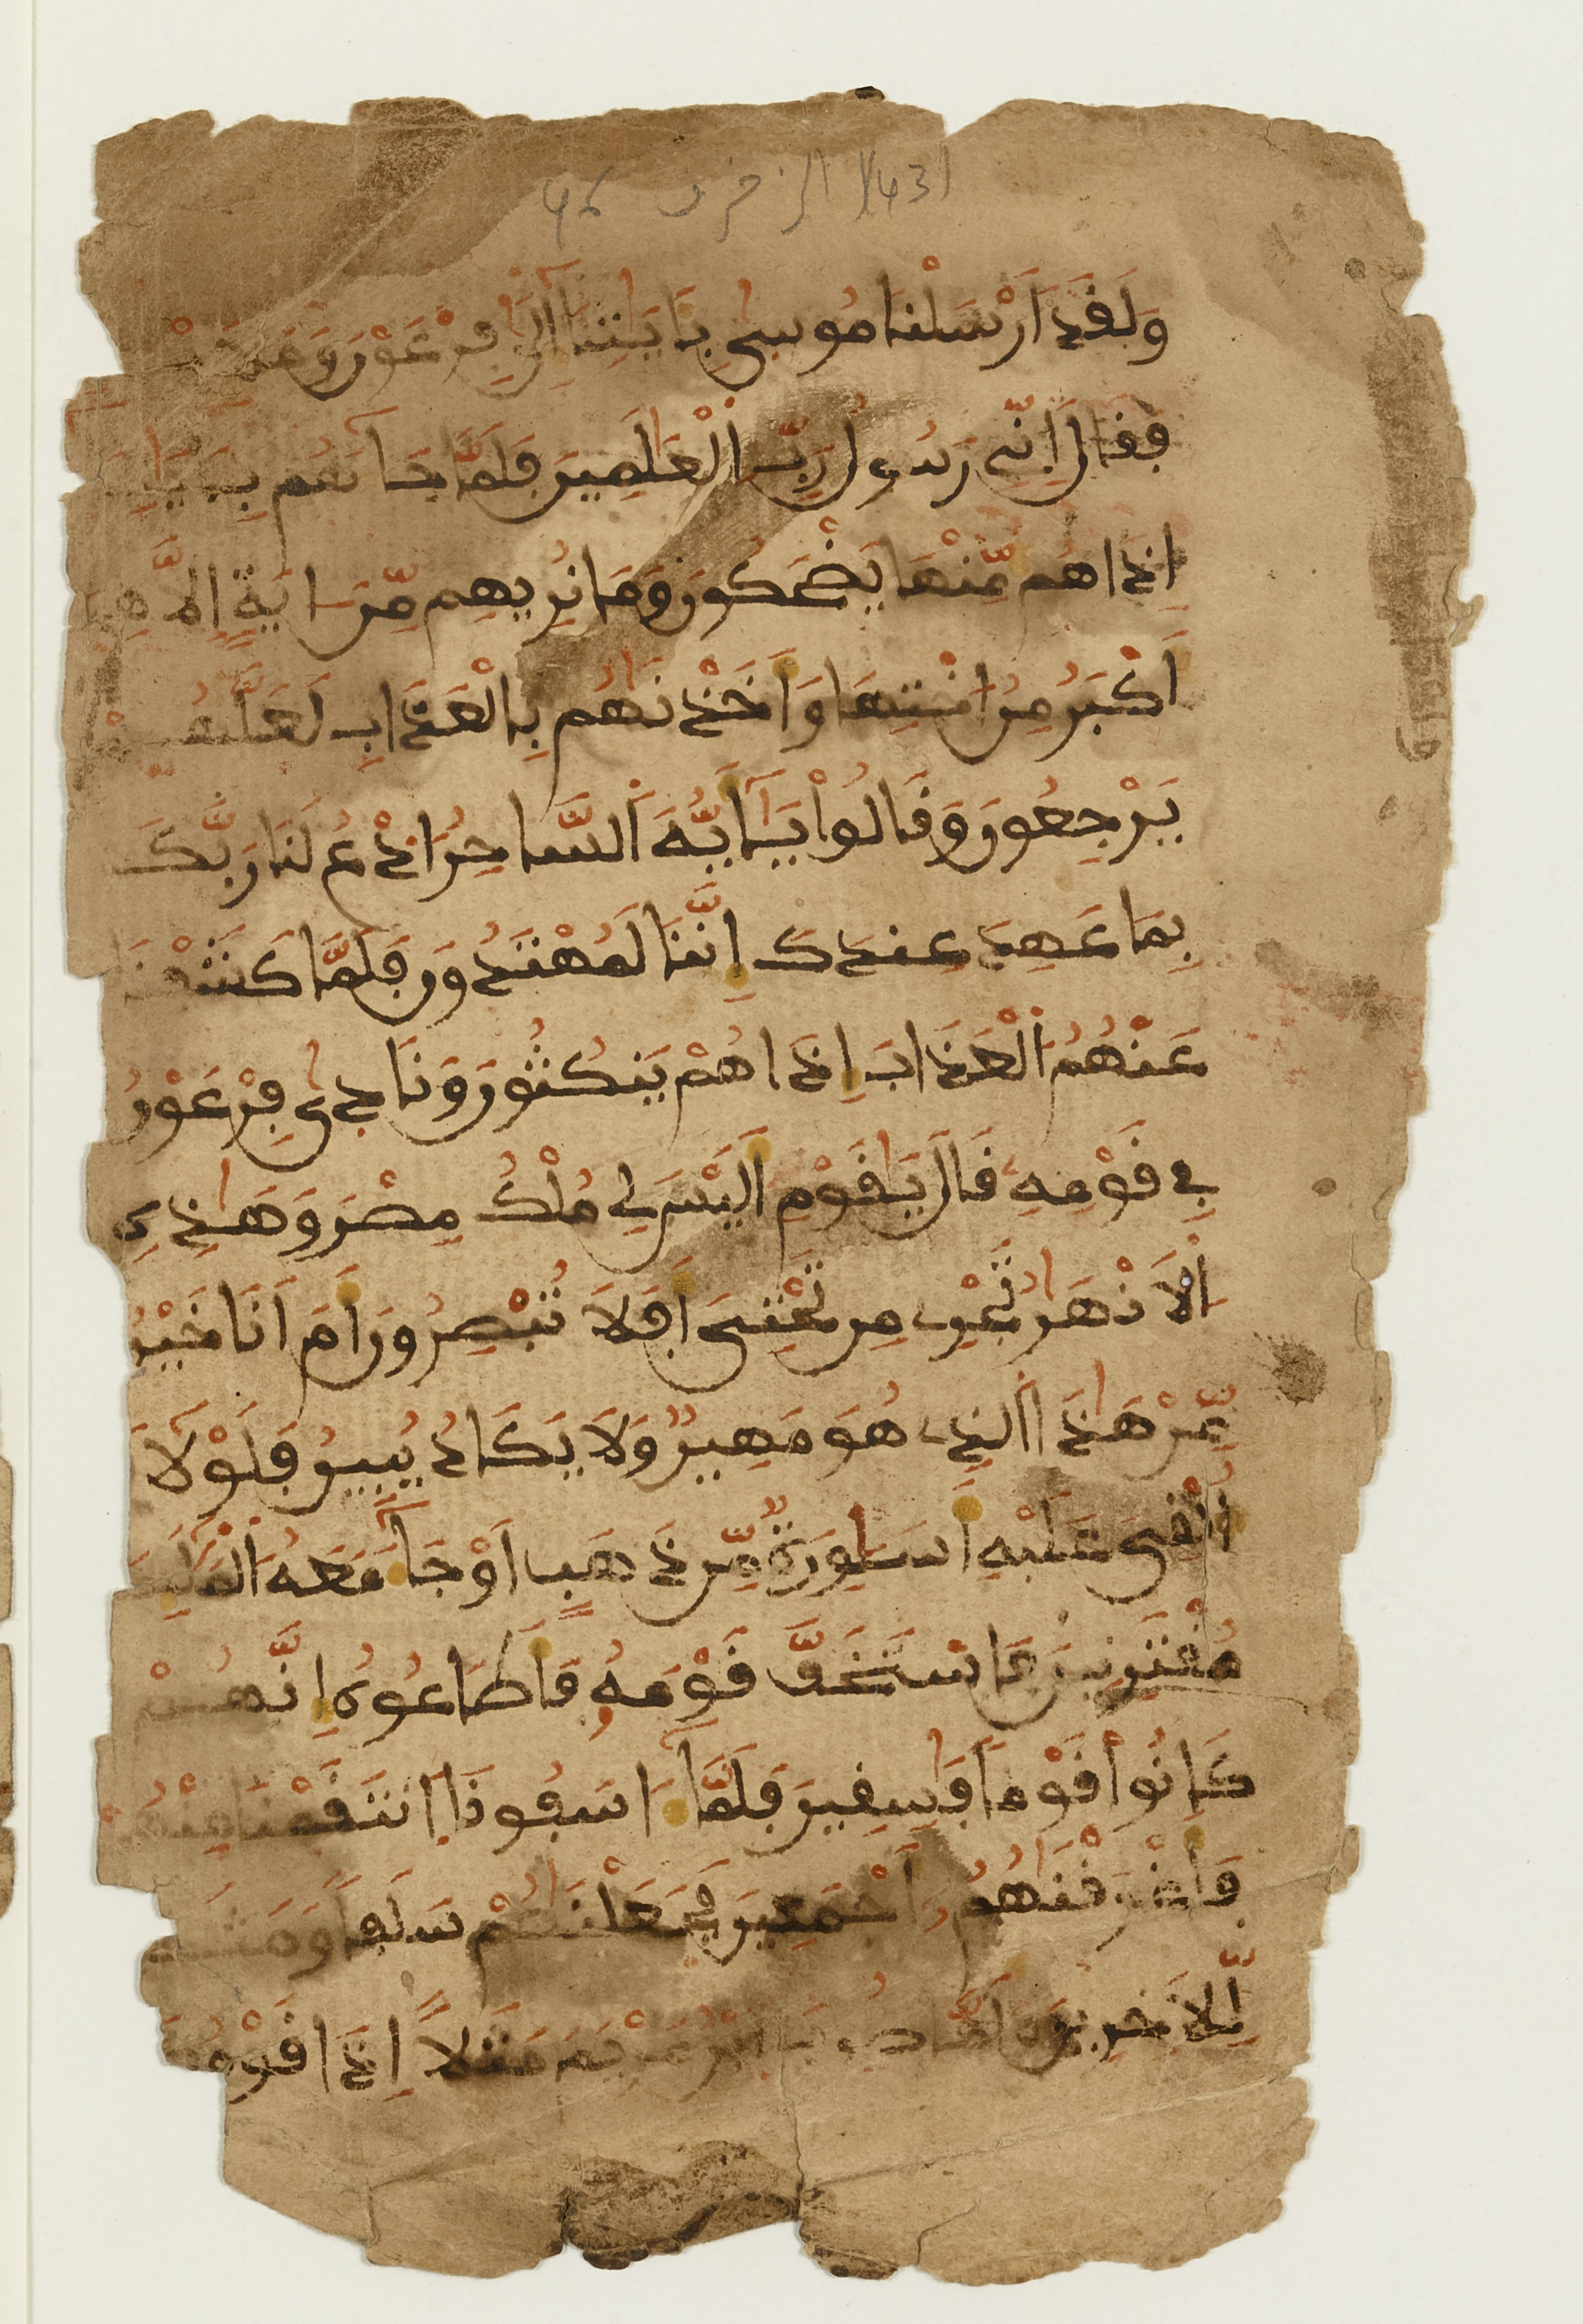 الزخرف 46
وَلَقَدَ اَرْسَلْنَا مُوسىٰ بِـَٔايَٰتِنَآ إِلىٰ فِرْعَوْنَ وَمَلَإِيْهِ
فَقَالَ إِنِّے رَسُولُ رَبِّ اِ۬لْعَٰلَمِينَ فَلَمَّا جَآءَهُم بِـَٔايَٰتِنَآ
إِذَا هُم مِّنْهَا يَضْحَكُونَ وَمَا نُرِيهِم مِّنَ ـ ايَةٍ اِلَّا هِيَ
أَكْبَرُ مِنُ اخْتِهَا وَأَخَذْنَٰهُم بِالْعَذَابِ لَعَلَّهُمْ
يَرْجِعُونَ وَقَالُواْ يَٰٓأَيُّهَ اَ۬لسَّاحِرُ ا۟دْعُ لَنَا رَبَّكَ
بِمَا عَهِدَ عِندَكَ إِنَّنَا لَمُهْتَدُونَ فَلَمَّا كَشَفْنَا
عَنْهُمُ اُ۬لْعَذَابَ إِذَا هُمْ يَنكُثُونَ وَنَادىٰ فِرْعَوْنُ
فِي قَوْمِهِۦ قَالَ يَٰقَوْمِ أَلَيْسَ لِي مُلْكُ مِصْرَ وَهَٰذِهِ
اِ۬لَانْهَٰرُ تَجْرِے مِن تَحْتِيَ أَفَلَا تُبْصِرُونَ أَمَ اَنَا خَيْرٌ
مِّنْ هَٰذَا اَ۬لذِے هُوَ مَهِينٌ وَلَا يَكَادُ يُبِينُ فَلَوْلَآ
أُلْقِيَ عَلَيْهِ أَسَٰوِرَةٌ مِّن ذَهَبٍ اَوْ جَآءَ مَعَهُ اُ۬لْمَلَٰٓئِكَةُ
مُقْتَرِنِينَ فَاسْتَخَفَّ قَوْمَهُۥ فَأَطَاعُوهُ إِنَّهُمْ
كَانُواْ قَوْماً فَٰسِقِينَ فَلَمَّآ ءَاسَفُونَا اَ۪نتَقَمْنَا مِنْهُمْ
فَأَغْرَقْنَٰهُمُۥٓ أَجْمَعِينَ فَجَعَلْنَٰهُمْ سَلَفاً وَمَثَلاً
لِّلَاخِرِينَ وَلَمَّا ضُرِبَ اَ۪بْنُ مَرْيَمَ مَثَلاً اِذَا قَوْمُكَ